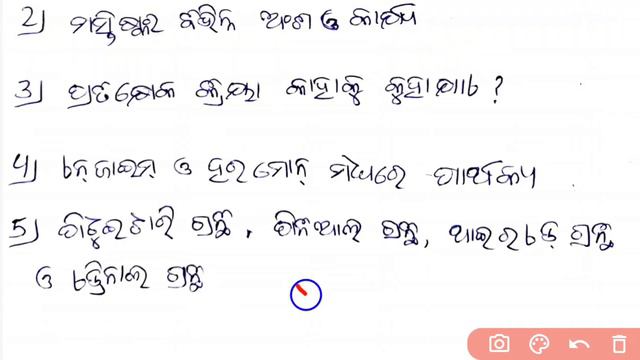 2) ମସ୍ତିଷ୍କର ବିଭିନ୍ନ ଅଂଶ ଓ କାର୍ଯ୍ୟ
3) ପ୍ରତିକ୍ଷେପ କ୍ରିୟା କାହାକୁ କୁହାଯାଏ ?
4) ଏନ୍‌ଜାଇମ୍ ଓ ହରମୋନ୍ ମଧ୍ୟରେ ପାର୍ଥକ୍ୟ
5) ପିଟୁଇଟାରୀ ଗ୍ରନ୍ଥି, ପିନିଆଲ ଗ୍ରନ୍ଥି, ଥାଇରଏଡ଼ ଗ୍ରନ୍ଥି
ଓ ଏଡ୍ରିନାଲ ଗ୍ରନ୍ଥି